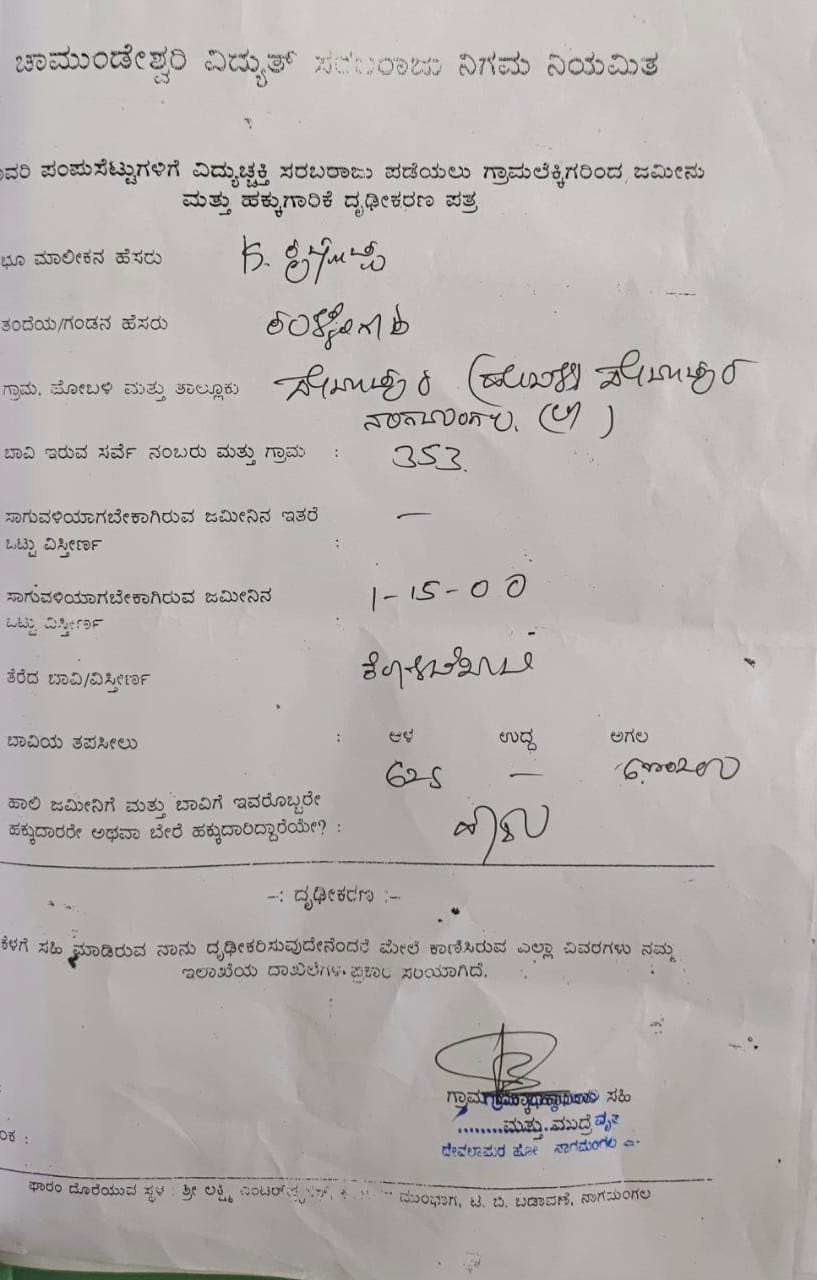 ಚಾಮುಂಡೇಶ್ವರಿ ವಿದ್ಯುತ್ ಸರಬರಾಜು ನಿಗಮ ನಿಯಮಿತ
ಪಂಪುಸೆಟ್ಟುಗಳಿಗೆ ವಿದ್ಯುಚ್ಛಕ್ತಿ ಸರಬರಾಜು ಪಡೆಯಲು ಗ್ರಾಮಲೆಕ್ಕಿಗರಿಂದ ಜಮೀನು
ಮತ್ತು ಹಕ್ಕುಗಾರಿಕೆ ದೃಢೀಕರಣ ಪತ್ರ
ಭೂ ಮಾಲೀಕನ ಹೆಸರು
ತಂದೆಯ/ಗಂಡನ ಹೆಸರು
ಗ್ರಾಮ, ಹೋಬಳಿ ಮತ್ತು ತಾಲ್ಲೂಕು ದೇವಲಾಪುರ ದೇವಲಾಪುರ
ನಾಗಮಂಗಲ
ಬಾವಿ ಇರುವ ಸರ್ವೆ ನಂಬರು ಮತ್ತು ಗ್ರಾಮ : 353.
ಸಾಗುವಳಿಯಾಗಬೇಕಾಗಿರುವ ಜಮೀನಿನ ಇತರೆ —
ಒಟ್ಟು ವಿಸ್ತೀರ್ಣ :
ಸಾಗುವಳಿಯಾಗಬೇಕಾಗಿರುವ ಜಮೀನಿನ 1-15-00
ಒಟ್ಟು ವಿಸ್ತೀರ್ಣ :
ತೆರೆದ ಬಾವಿ/ವಿಸ್ತೀರ್ಣ ಕೊಳವೆಬಾವಿ
ಬಾವಿಯ ತಪಸೀಲು : ಆಳ ಉದ್ದ ಅಗಲ
625 —
ಹಾಲಿ ಜಮೀನಿಗೆ ಮತ್ತು ಬಾವಿಗೆ ಇವರೊಬ್ಬರೇ
ಹಕ್ಕುದಾರರೇ ಅಥವಾ ಬೇರೆ ಹಕ್ಕುದಾರಿದ್ದಾರೆಯೇ? :
-: ದೃಢೀಕರಣ :-
ಕೆಳಗೆ ಸಹಿ ಮಾಡಿರುವ ನಾನು ದೃಢೀಕರಿಸುವುದೇನೆಂದರೆ ಮೇಲೆ ಕಾಣಿಸಿರುವ ಎಲ್ಲಾ ವಿವರಗಳು ನಮ್ಮ
ಇಲಾಖೆಯ ದಾಖಲೆಗಳ ಪ್ರಕಾರ ಸರಿಯಾಗಿದೆ.
ಗ್ರಾಮ ಸಹಿ
........ಮತ್ತು ಮುದ್ರೆ ವೃತ್ತ
ದೇವಲಾಪುರ ಹೋ ನಾಗಮಂಗಲ
ಫಾರಂ ದೊರೆಯುವ ಸ್ಥಳ : ಶ್ರೀ ಲಕ್ಷ್ಮಿ ಮುಂಭಾಗ, ಟಿ. ಬಿ. ಬಡಾವಣೆ, ನಾಗಮಂಗಲ